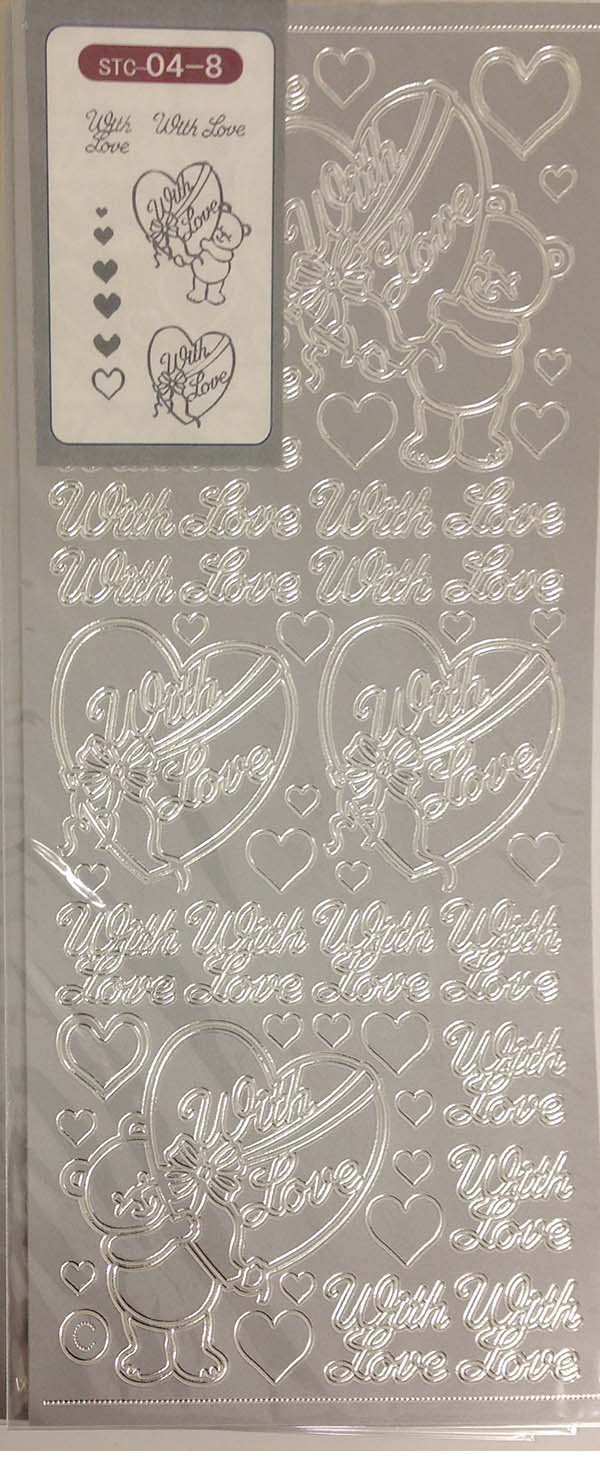 STC-04-8
With With Love
Love
With
Love
With
Love
With
Love
With Love With Love
With Love With Love
With
Love
With
Love
With With With With
Love Love Love Love
With
Love
With
Love
With
Love
With With
Love Love
C